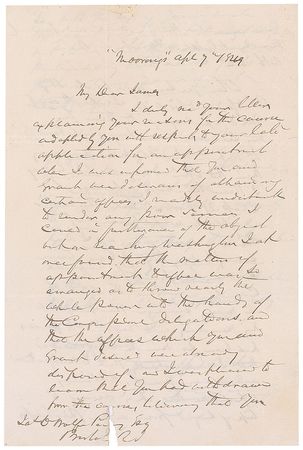 "Moorings" Apl 7th 1849
My Dear James
I duly recd your letter
explaining your reasons for the course
adopted by you with respect to your late
application for an appointment
When I was informed that you and
were desirous of obtaining
certain offices, I readily undertook
to render any services I
could in furtherance of the object
but on reaching Washington I at
once found that the matter of
appointments to office was so
arranged as to throw nearly the
whole power into the hands of
the Congressional delegations, and
that the offices which you and
desired were already
disposed of, and I was pleased to
learn that you had withdrawn
from the canvass, believing that you
Jas D Wolf Perry Esq
Bristol R.I.